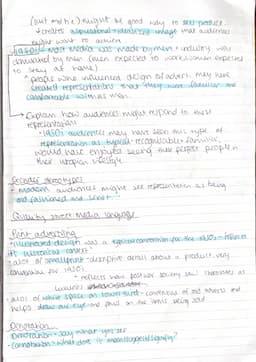 (suit and tie) might be good way to sell product.
• creates aspirational identity image that audiences
might want to achieve
most media was made by men + industry was
dominated by men (men expected to work, women expected
to stay at home)
• people who influenced design of advert may have
created representations that they were familiar and
comfortable with as men.
Explain how audiences might respond to these
representations
• 1950s audiences may have seen this type of
representation as typical, recognisable, familiar,
would have enjoyed seeing these perfect people in
their utopian lifestyle
stereotypes
• modern audiences might see representation as being
old fashioned and sexist.
media language
Print advertising
• illustrated design was a convention for the
historical context
• a lot of smallprint - descriptive detail about a product. very
for 1950s
• reflects how post war society saw as
• a lot of white space on lower third - of old adverts and
helps draw our eye and focus on the items being sold
Denotation
Denotation - say what you see
Connotation - what does it mean/suggest/signify?